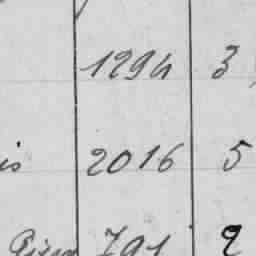 1294 3
is 2016 5
791 2